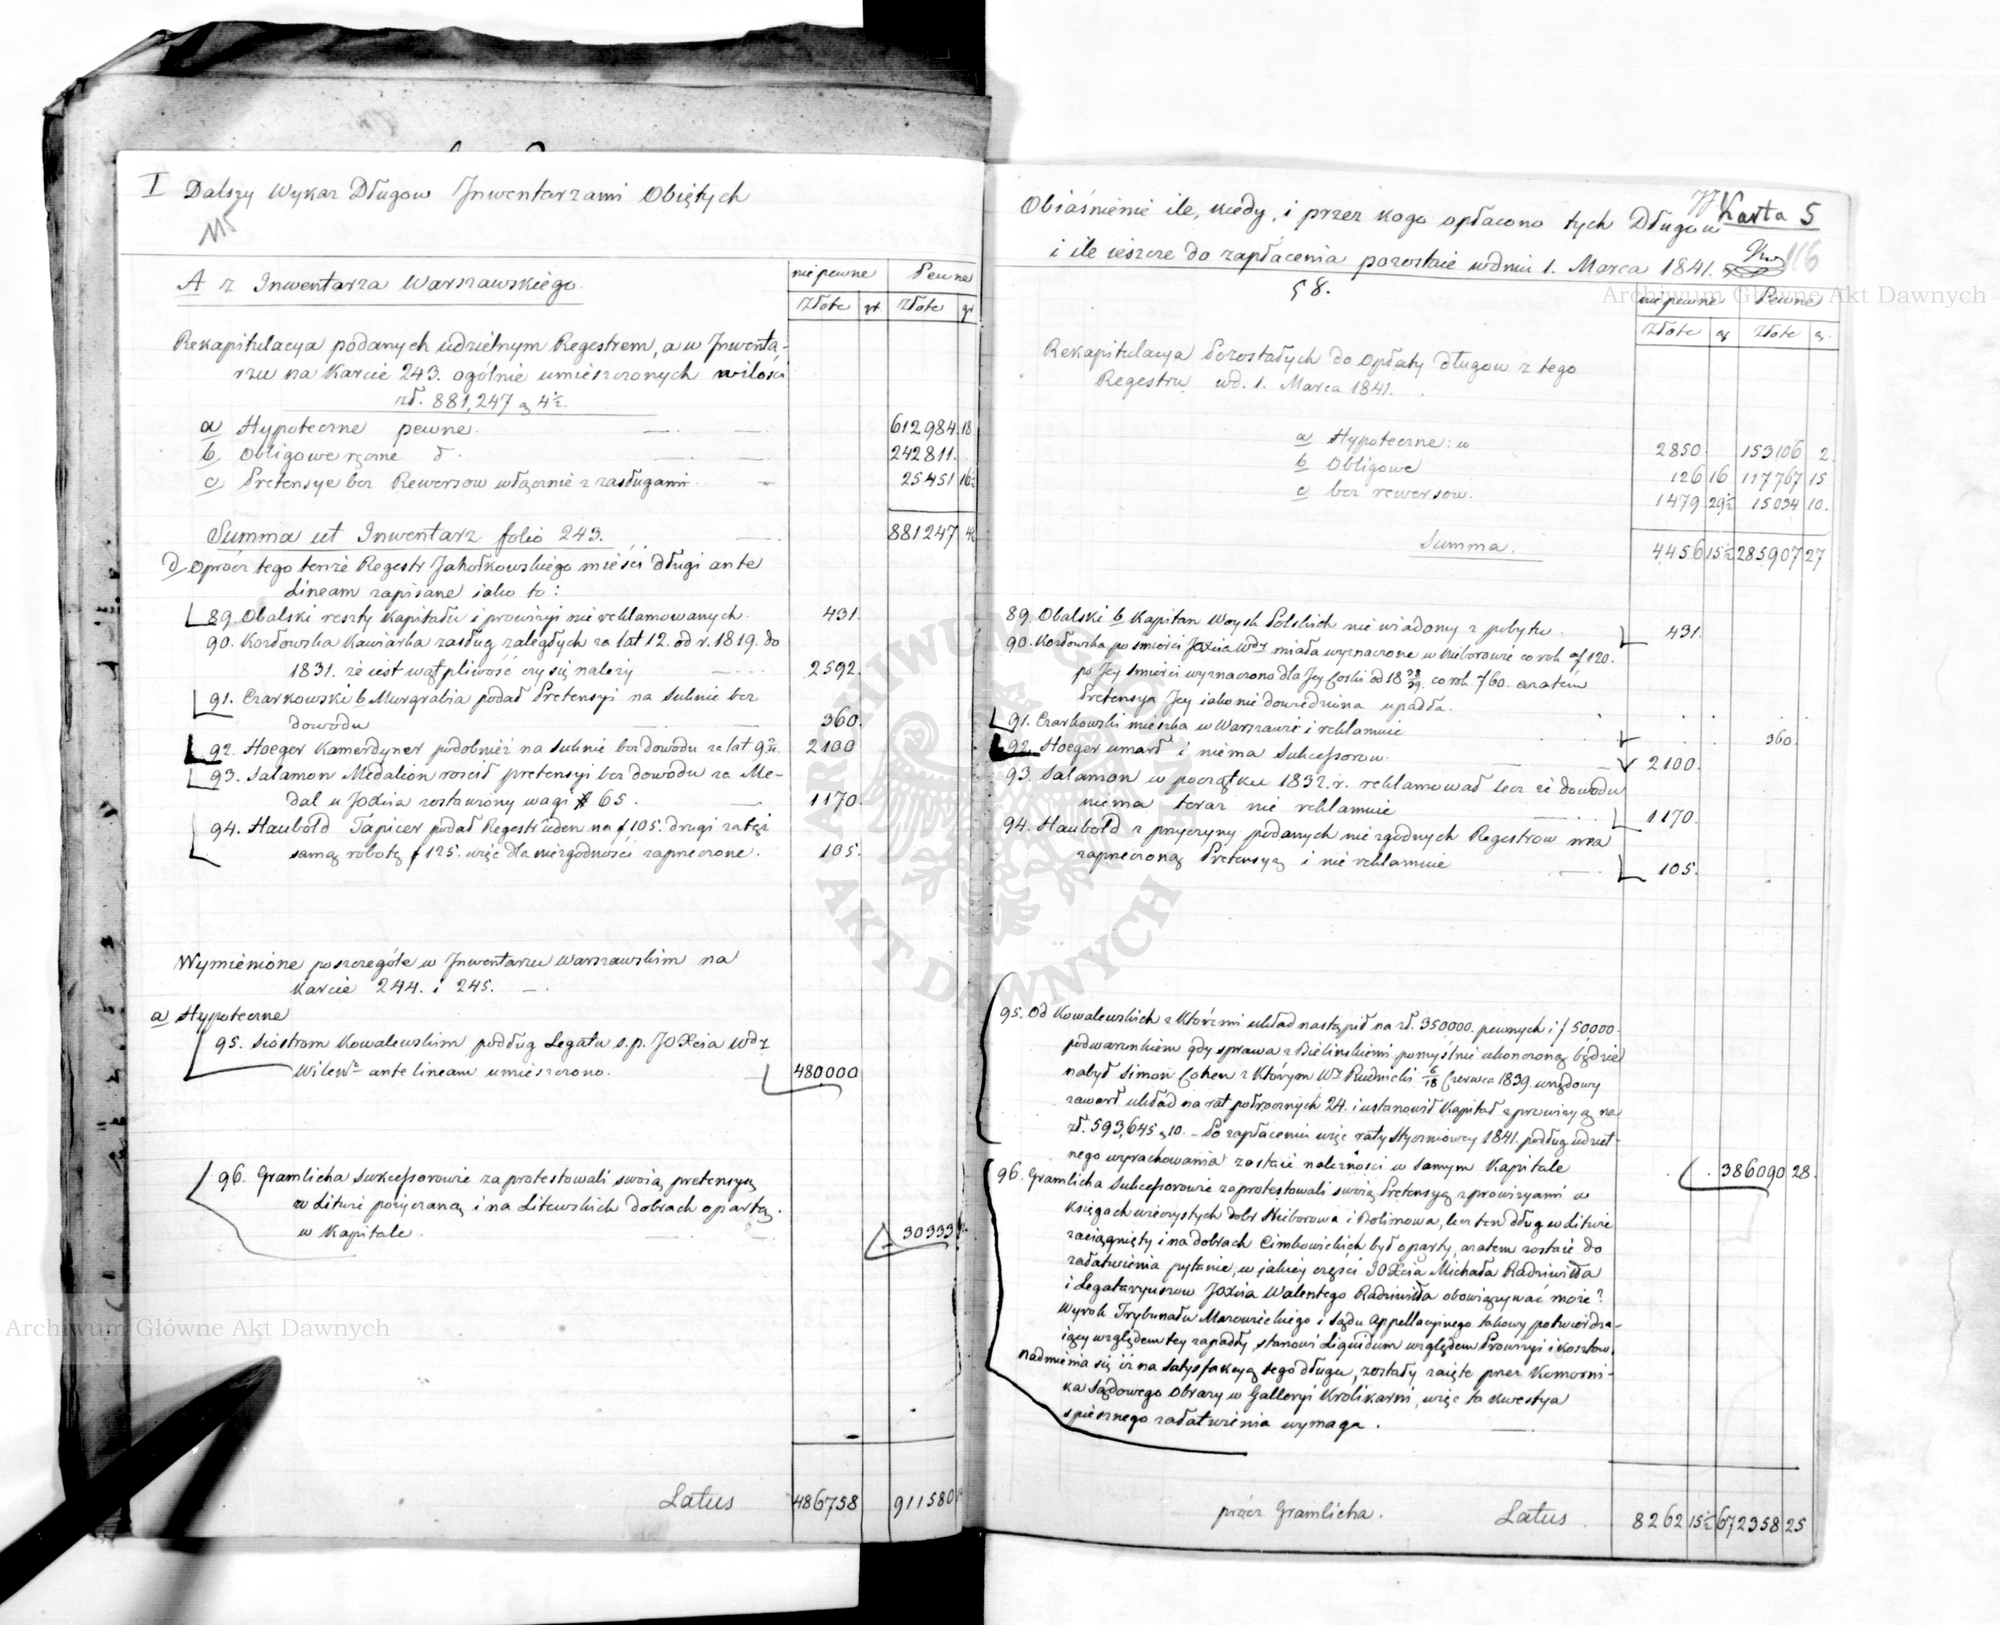 I Dalszy Wykaz Długow Inwentarzami Obiętych
115
A z Inwentarza Warszawskiego.
nie pewne Pewne
Złote gr Złote gr
Rekapitulacya podanych udzielnym Regestrem, a w Inwenta-
rzu na Karcie 243. ogólnie umieszczonych w ilości
zł. 881,247 g 4½.
a Hypoteczne pewne. 612984 18
b Obligowe rzeczne d. 242811.
c Pretensye bez Rewersow włącznie z zasługami 25451 16½
Summa ut Inwentarz folio 243. 881247 4½
d Oprócz tego tenże Regestr Jahołkowskiego mieści długi ante
Lineam zapisane iako to:
89. Obalski reszty Kapitału i prowizyi nie reklamowanych. 431.
90. Kozłowska Kawiarka zasług zaległych za lat 12. od r. 1819. do
1831. że iest wątpliwość czy się należy 2592.
91. Czarkowski b Murgrabia podał Pretensyi na Suknie bez
dowodu 360.
92. Hoeger Kamerdyner podobnież na Suknie bez dowodu za lat 9 2100
93. Salamon Medalion rościł pretensyi bez dowodu za Me-
dal u JOXcia zostawiony wagi # 65. 1170.
94. Haubold Tapicer podał Regestr ieden na f 105. drugi za też
samą robotę f 125. więc dla niezgodności zaprzeczone. 105.
Wymienione poszczególe w Inwentarzu Warszawskim na
Karcie 244. i 245.
a Hypoteczne
95. Siostrom Kowalewskim podług Legatu s.p. JOXcia Wdy
Wileńo ante lineam umieszczono. 480000
96. Gramlicha Sukcessorowie zaprotestowali swoią pretensyą
w Litwie pożyczaną i na Litewskich dobrach opartą.
w Kapitale. 30333
Latus 486758 911580
Karta 5
116
Obiaśnienie ile, kiedy, i przez kogo opłacono tych Długow
i ile ieszcze do zapłacenia pozostaie w dniu 1. Marca 1841.
§ 8.
nie pewne Pewne
Złote gr Złote g.
Rekapitulacya Pozostałych do opłaty długow z tego
Regestru w d. 1. Marca 1841.
a Hypoteczne: w 2850. 153106 2.
b Obligowe 126 16 117767 15
c bez rewersow. 1479 29½ 15034 10.
Summa. 4456 15½ 285907 27
89. Obalski b Kapitan Woysk Polskich nie wiadomy z pobytu. 431.
90. Kozłowska po śmierci JOXcia Wdy miała wyznaczone w Nieborowie co rok f 120.
po Jey śmierci wyznaczono dla Jey Corki od 18 38/39. co rok f 60. a zatém
Pretensya Jey iako nie dowiedziona upadła.
91. Czarkowski mieszka w Warszawie i reklamuie 360.
92. Hoeger umarł i niema Sukcessorow. 2100.
93. Salamon w początku 1832. r. reklamował lecz że dowodu
niema teraz nie reklamuie 1170.
94. Haubold z przyczyny podanych nie zgodnych Regestrow ma
zaprzeczoną Pretensyą i nie reklamuie 105.
95. Od Kowalewskich z Któremi układ nastąpił na zł. 350000. pewnych i f 50000.
pod warunkiem gdy sprawa z Bielinskiemi pomyślnie ukonczoną będzie
nabył Simon Cohen z Którym Wy Rudnicki 6/18 Czerwca 1839. urzędowy
zawarł układ na rat połrocznych 24. i ustanowił Kapitał z prowizyą na
zł. 593,645 g 10. – Po zapłaceniu więc raty Styczniowey 1841. podług udziel-
nego wyrachowania zostaie należności w samym Kapitale 386090 28.
96. Gramlicha Sukcessorowie zaprotestowali swoią Pretensyą z prowizyami w
Księgach wieczystych dobr Nieborowa i Bolimowa, lecz ten dług w Litwie
zaciągnięty i na dobrach Cimkowickich był oparty, a zatem zostaie do
załatwienia pytanie, w jakiey części JOXcia Michała Radziwiłła
i Legataryuszow JOXcia Walentego Radziwiłła obowiązywać może?
Wyrok Trybunału Mazowieckiego i Sądu Appellacyinego takowy potwierdza-
iący względem tey zapadły, stanowi Liquidum względem Prowizyi i kosztow.
Nadmienia się iż na satysfakcyą tego długu, zostały zaięte przez Komorni-
ka Sądowego Obrazy w Galleryi Krolikarni, więc ta kwestya
spiesznego załatwienia wymaga.
prócz Gramlicha. Latus. 8262 15½ 672358 25
Archiwum Główne Akt Dawnych
Archiwum Główne Akt Dawnych
ARCHIWUM GŁÓWNE AKT DAWNYCH